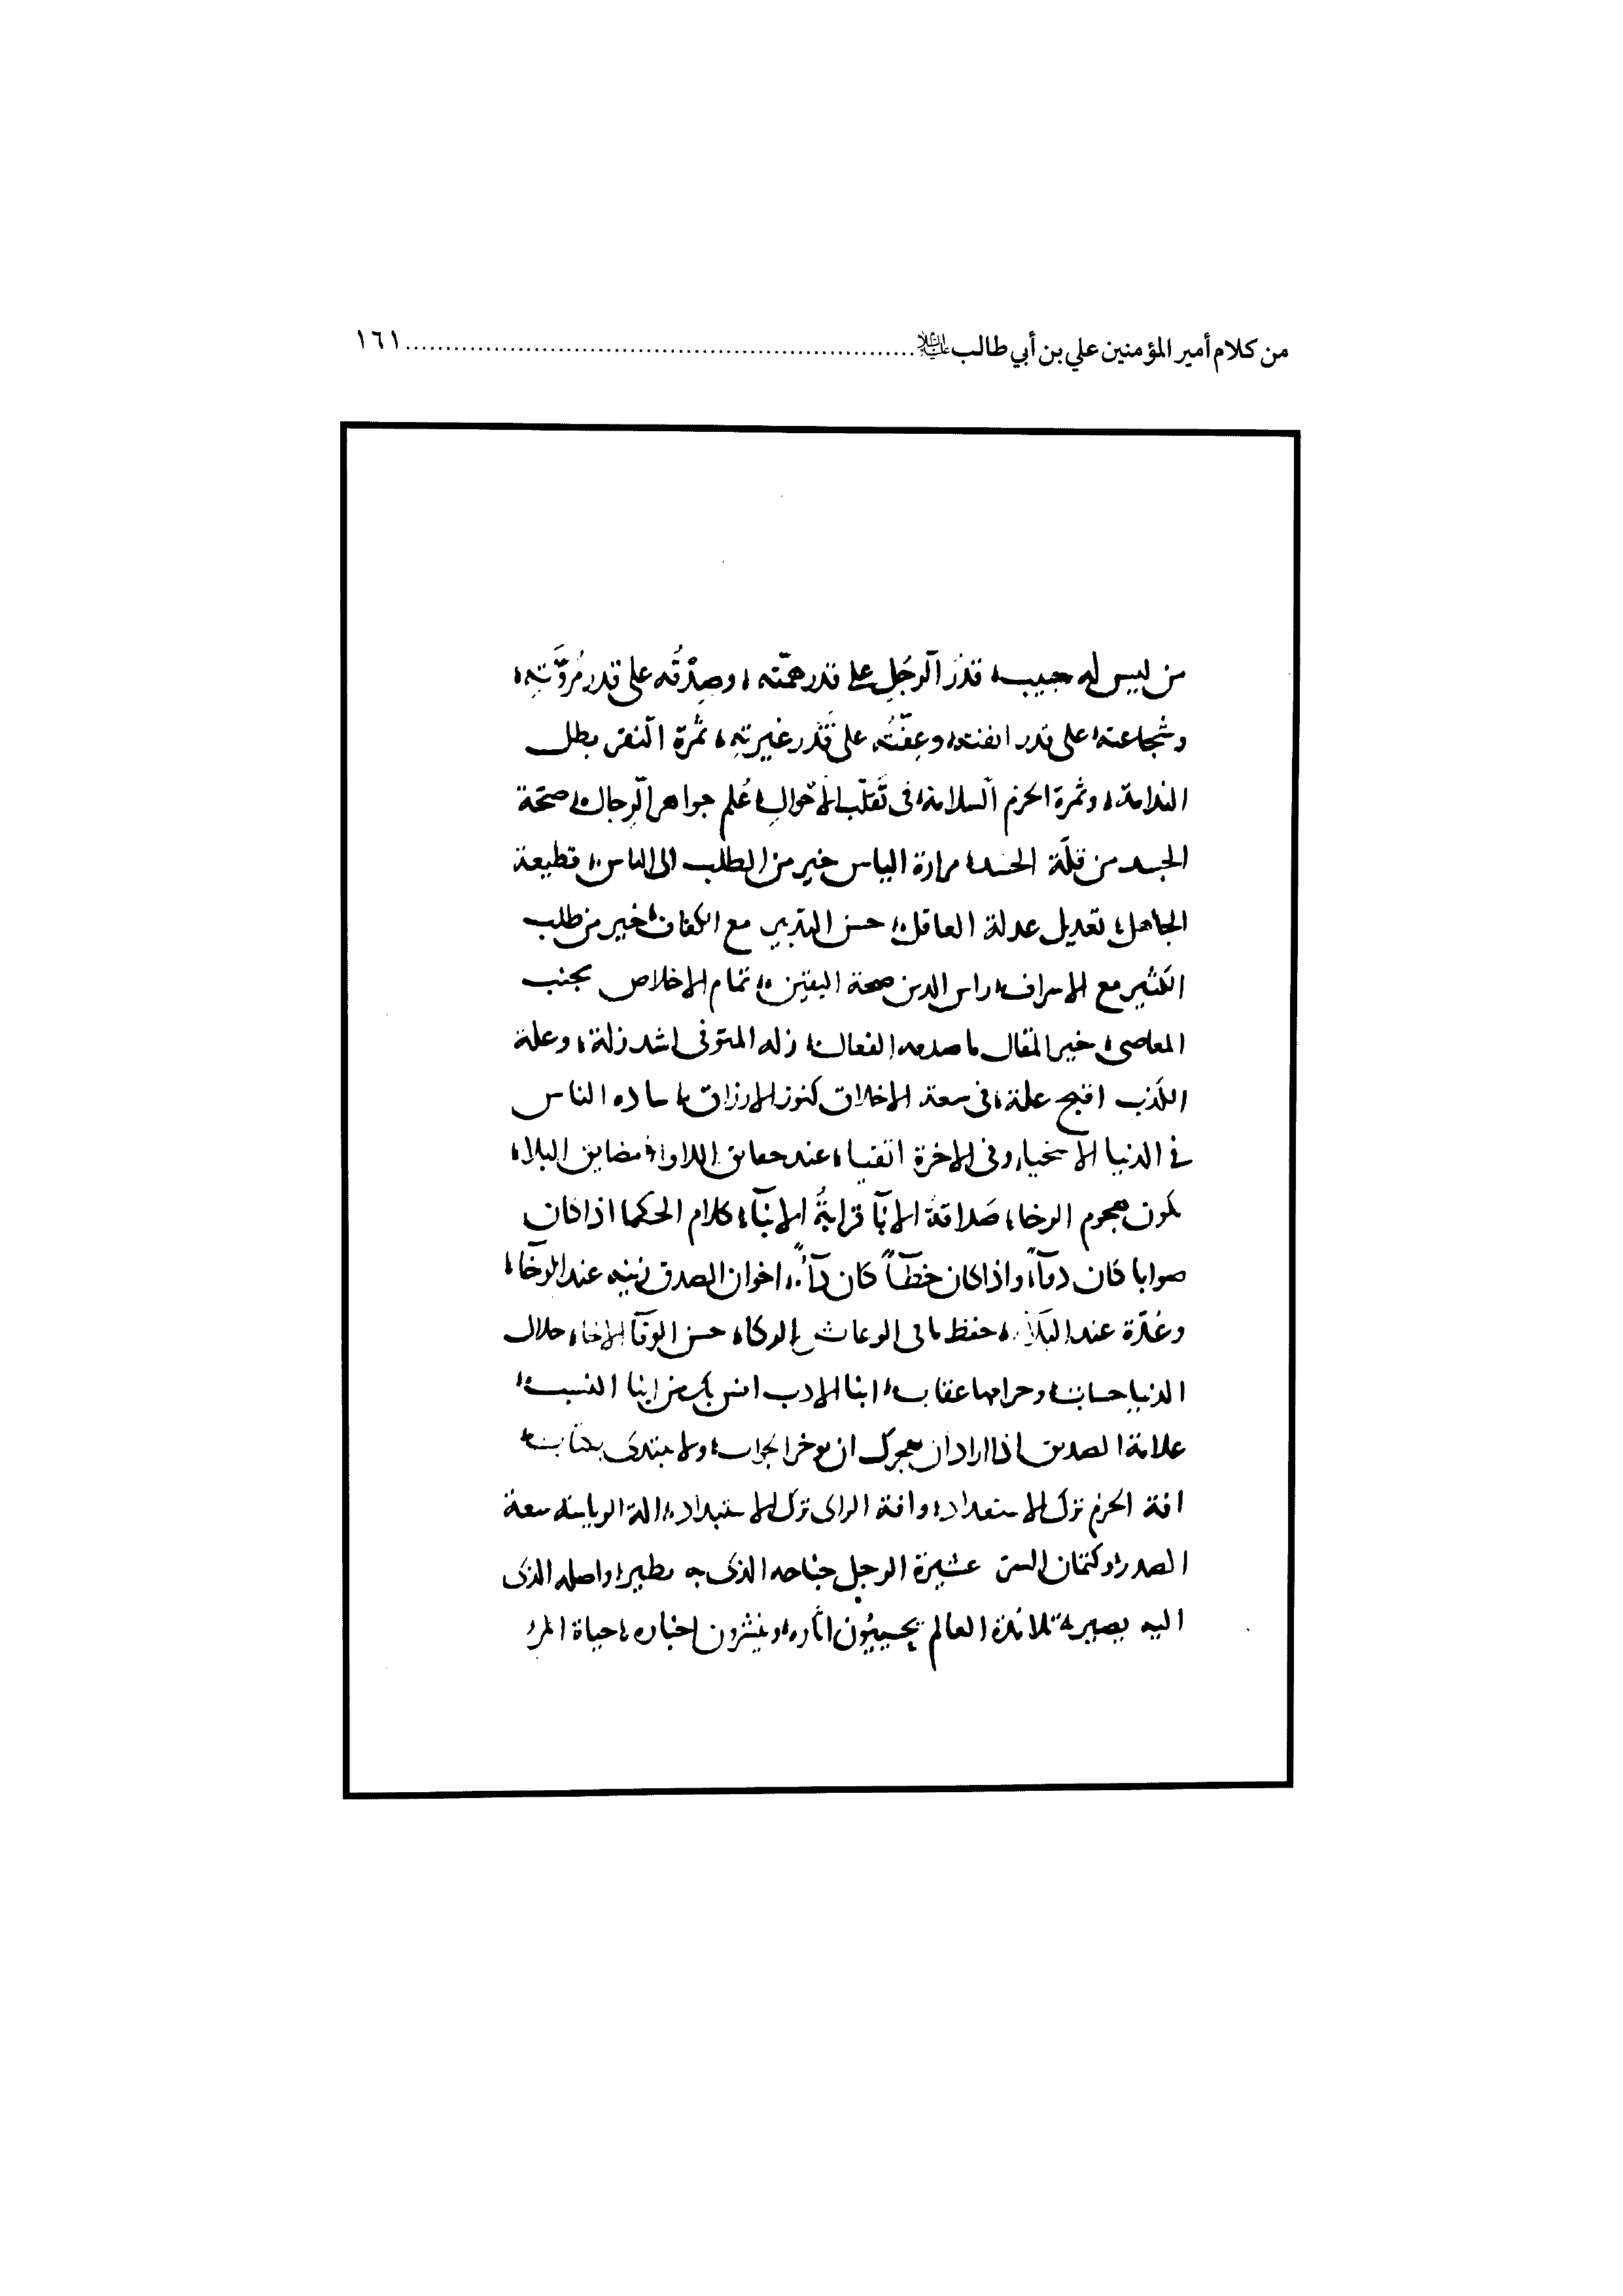 من كلام أمير المؤمنين علي بن أبي طالب عليه السلام ........ ١٦١
من ليس له حبيب، قدَر الرجُلِ على قدر همّته، وصِدْقُه على قدر مُروَّتِهِ،
وشجاعته على قدر انفته، وعِفّتُه على قَدْر غيرتِه، ثمرة التفريط
الندامة، وثمرة الحزم السلامة، فى تَقَلّب الأحوالِ عُلم جواهر الرِجال، صحّة
الجسد من قلّة الحسد، مرارة الياس خير من الطلب الى الناس، قطيعة
الجاهل، تعديل عدلة العاقل، حسن التدبير مع الكفاف خير من طلب
الكثير مع الاسراف، راس الدين صحة اليقين، تمام الاخلاص تجنب
المعاصى، خير المقال ما صدقه الفعال، زله المتوقى اشد زلة، وعلة
الكذب اقبح علة، فى سعة الاخلاق كنوز الارزاق، ساده الناس
فى الدنيا الاسخيا، وفى الاخرة اتقيا، عند مضايق البلاء
يكون هجوم الرخا، صَداقة الابآ قرابةُ الابنآء، كلام الحكما اذا كان
صوابا كان دوآءً، واذا كان خطآءً كان دآءً، اخوان الصدق زينه عند الرخآء،
وعُدّة عند البلآء، حفظ ما فى الوعا شد الوكاء، حسن الوفآ الاخاء، حلال
الدنيا حساب، وحرامها عقاب، ابنا الادب من ابنا النسب،
علامة الصديق اذا اراد ان يهجرك ان يوخر الجواب، ولا يبتدى بكتاب،
افة الحزم ترك الاستعداد، وافة الراى ترك الاستبداد، الة الرياسة سعة
الصدر، وكتمان السر عشيرة الرجل جناحه الذى به يطير، واصله الذى
اليه يصير، تلامذة العالم يحييون اثاره، وينشرون اخباره، حياة المرء